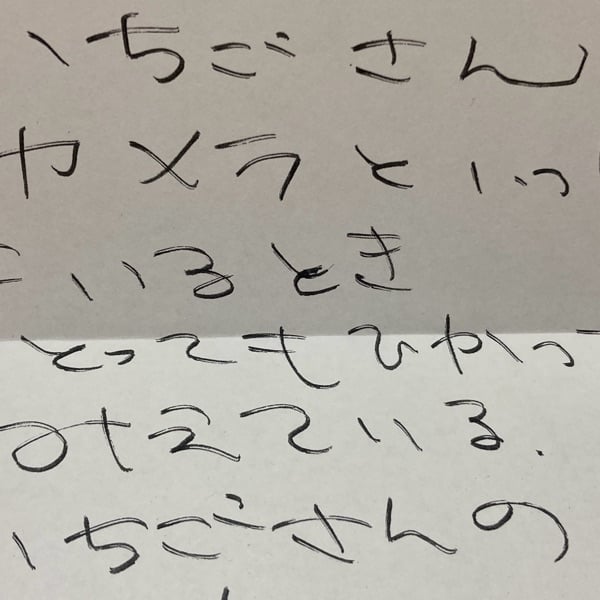 いちご さん
カメラといっ
いるとき
とってもひかっ
みえている.
いちごさんの